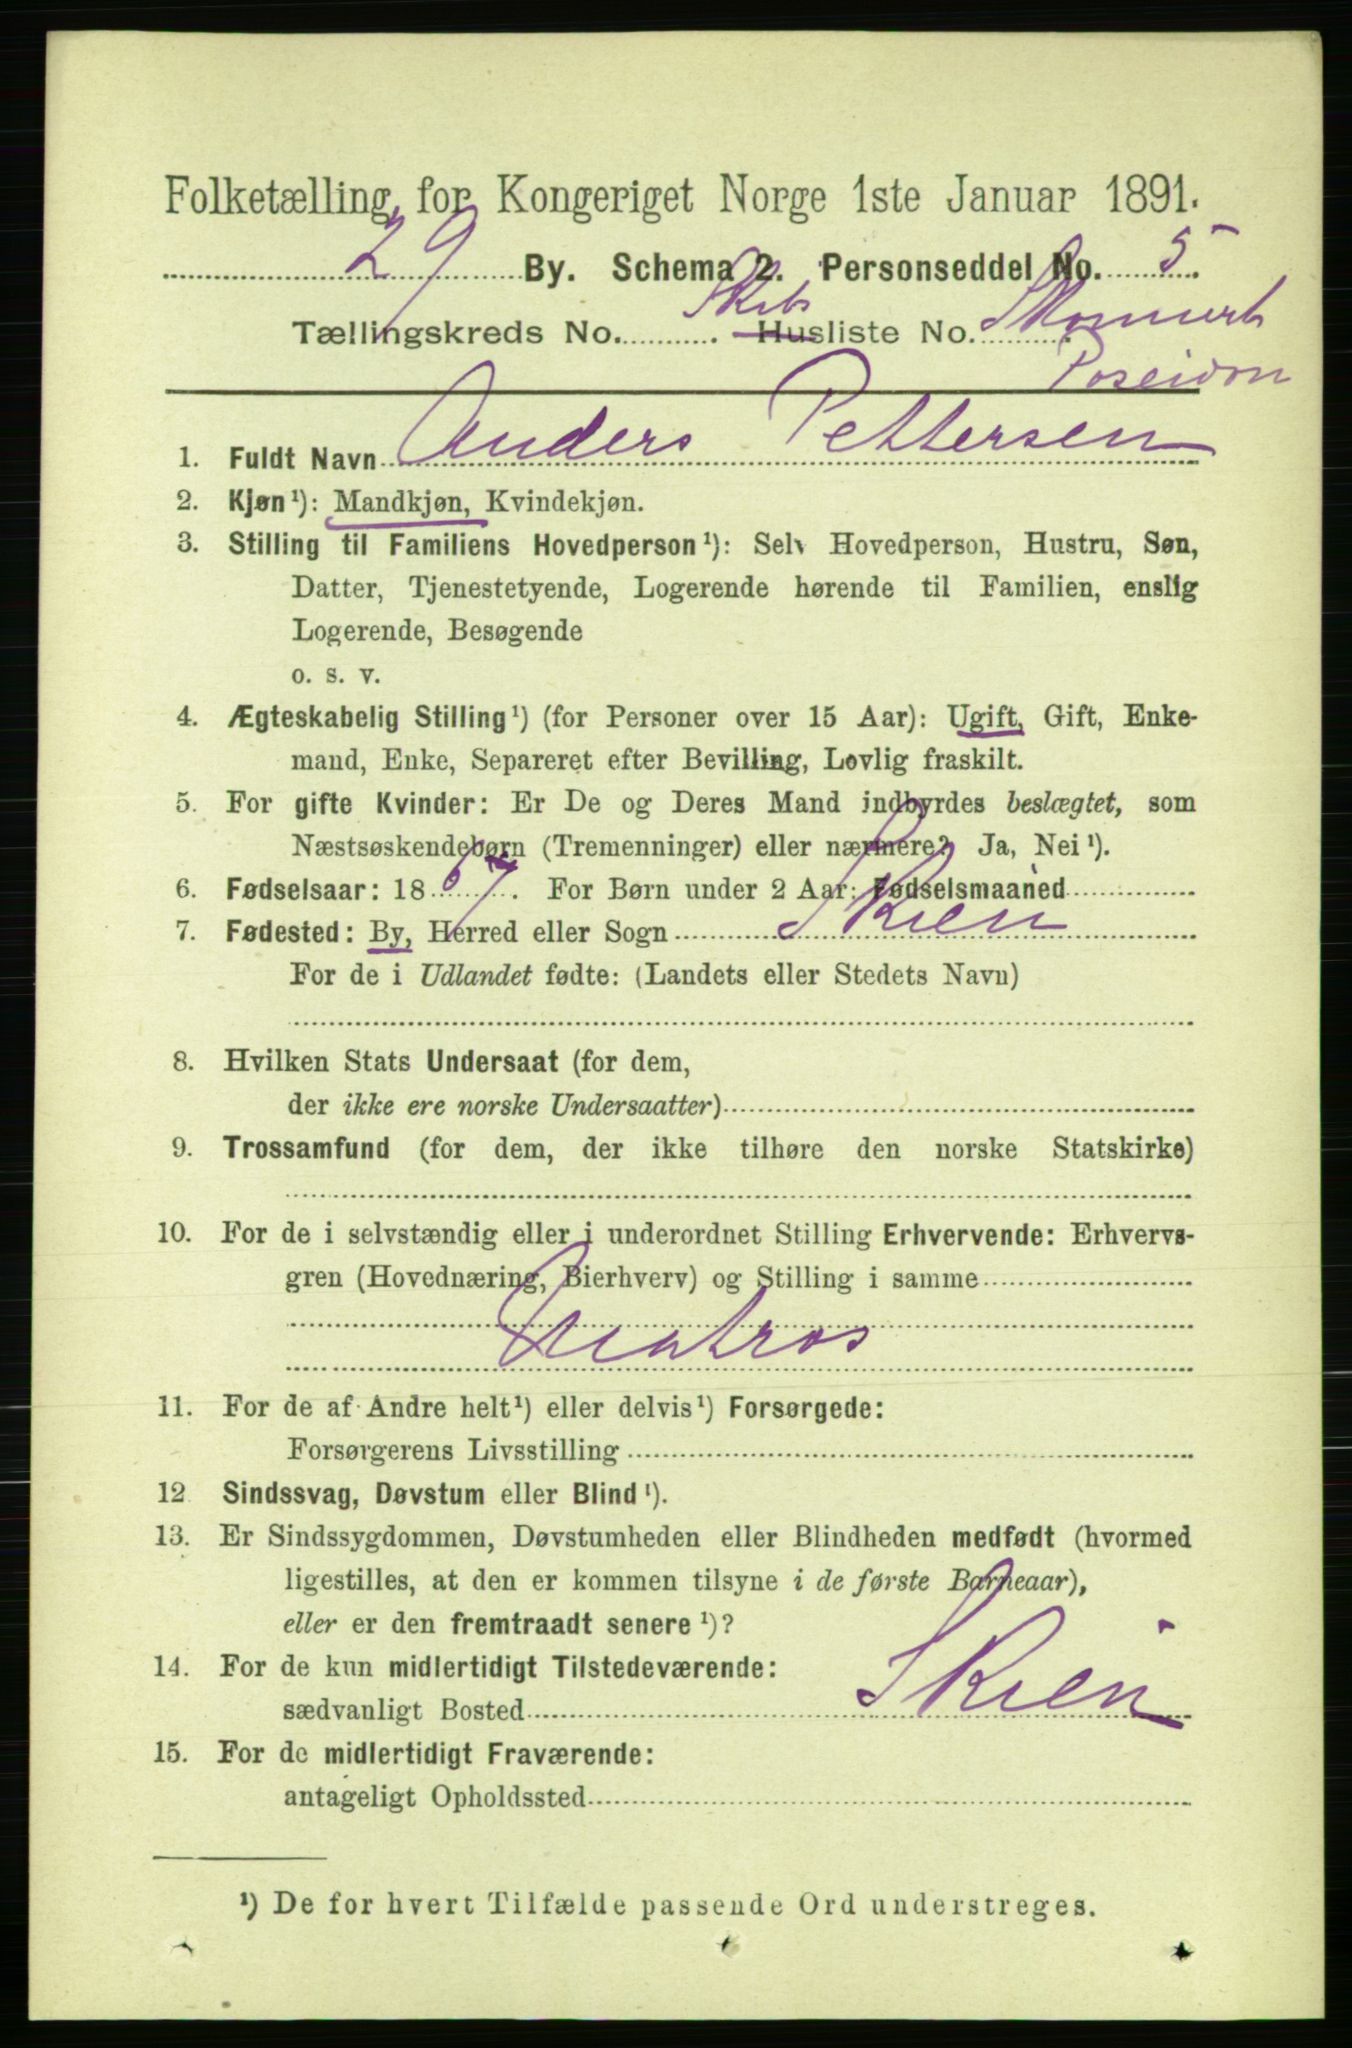 Folketælling for Kongeriget Norge 1ste Januar 1891.
29 By. Schema 2. Personseddel No. 5
Tællingskreds No. ........ Skibs Husliste No. Skonnert
Poseidon
1. Fuldt Navn Anders Pettersen
2. Kjøn¹): Mandkjøn, Kvindekjøn.
3. Stilling til Familiens Hovedperson¹): Selv Hovedperson, Hustru, Søn,
Datter, Tjenestetyende, Logerende hørende til Familien, enslig
Logerende, Besøgende
o. s. v.
4. Ægteskabelig Stilling¹) (for Personer over 15 Aar): Ugift, Gift, Enke-
mand, Enke, Separeret efter Bevilling, Lovlig fraskilt.
5. For gifte Kvinder: Er De og Deres Mand indbyrdes beslægtet, som
Næstsøskendebørn (Tremenninger) eller nærmere? Ja, Nei¹).
6. Fødselsaar: 1867. For Børn under 2 Aar: Fødselsmaaned
7. Fødested: By, Herred eller Sogn Skien
For de i Udlandet fødte: (Landets eller Stedets Navn)
8. Hvilken Stats Undersaat (for dem,
der ikke ere norske Undersaatter)
9. Trossamfund (for dem, der ikke tilhøre den norske Statskirke)
10. For de i selvstændig eller i underordnet Stilling Erhvervende: Erhvervs-
gren (Hovednæring, Bierhverv) og Stilling i samme
Matros
11. For de af Andre helt¹) eller delvis¹) Forsørgede:
Forsørgerens Livsstilling
12 Sindssvag, Døvstum eller Blind¹).
13. Er Sindssygdommen, Døvstumheden eller Blindheden medfødt (hvormed
ligestilles, at den er kommen tilsyne i de første Barneaar),
eller er den fremtraadt senere¹)?
14. For de kun midlertidigt Tilstedeværende:
sædvanligt Bosted Skien
15. For de midlertidigt Fraværende:
antageligt Opholdssted
¹) De for hvert Tilfælde passende Ord understreges.